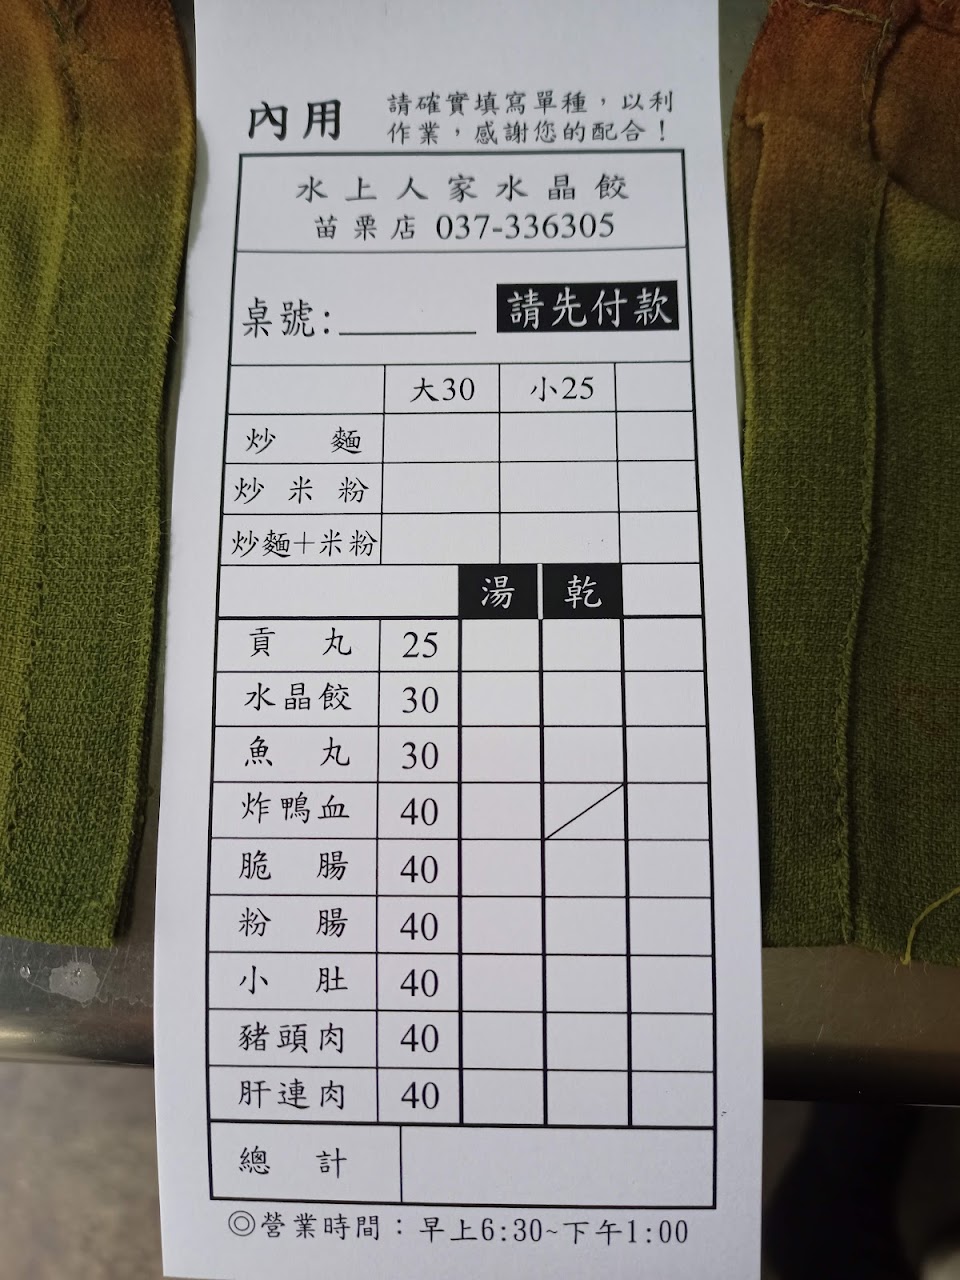 內用
請確實填寫單種，以利
作業，感謝您的配合！
水上人家水晶餃
苗栗店 037-336305
桌號:________ 請先付款
大30 小25
炒麵
炒米粉
炒麵＋米粉
湯 乾
貢丸 25
水晶餃 30
魚丸 30
炸鴨血 40
脆腸 40
粉腸 40
小肚 40
豬頭肉 40
肝連肉 40
總計
◎營業時間：早上6:30~下午1:00